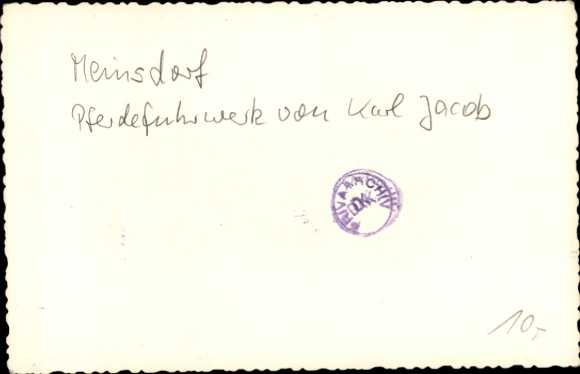 Meinsdorf
Pferdefuhrwerk von Karl Jacob
10,-